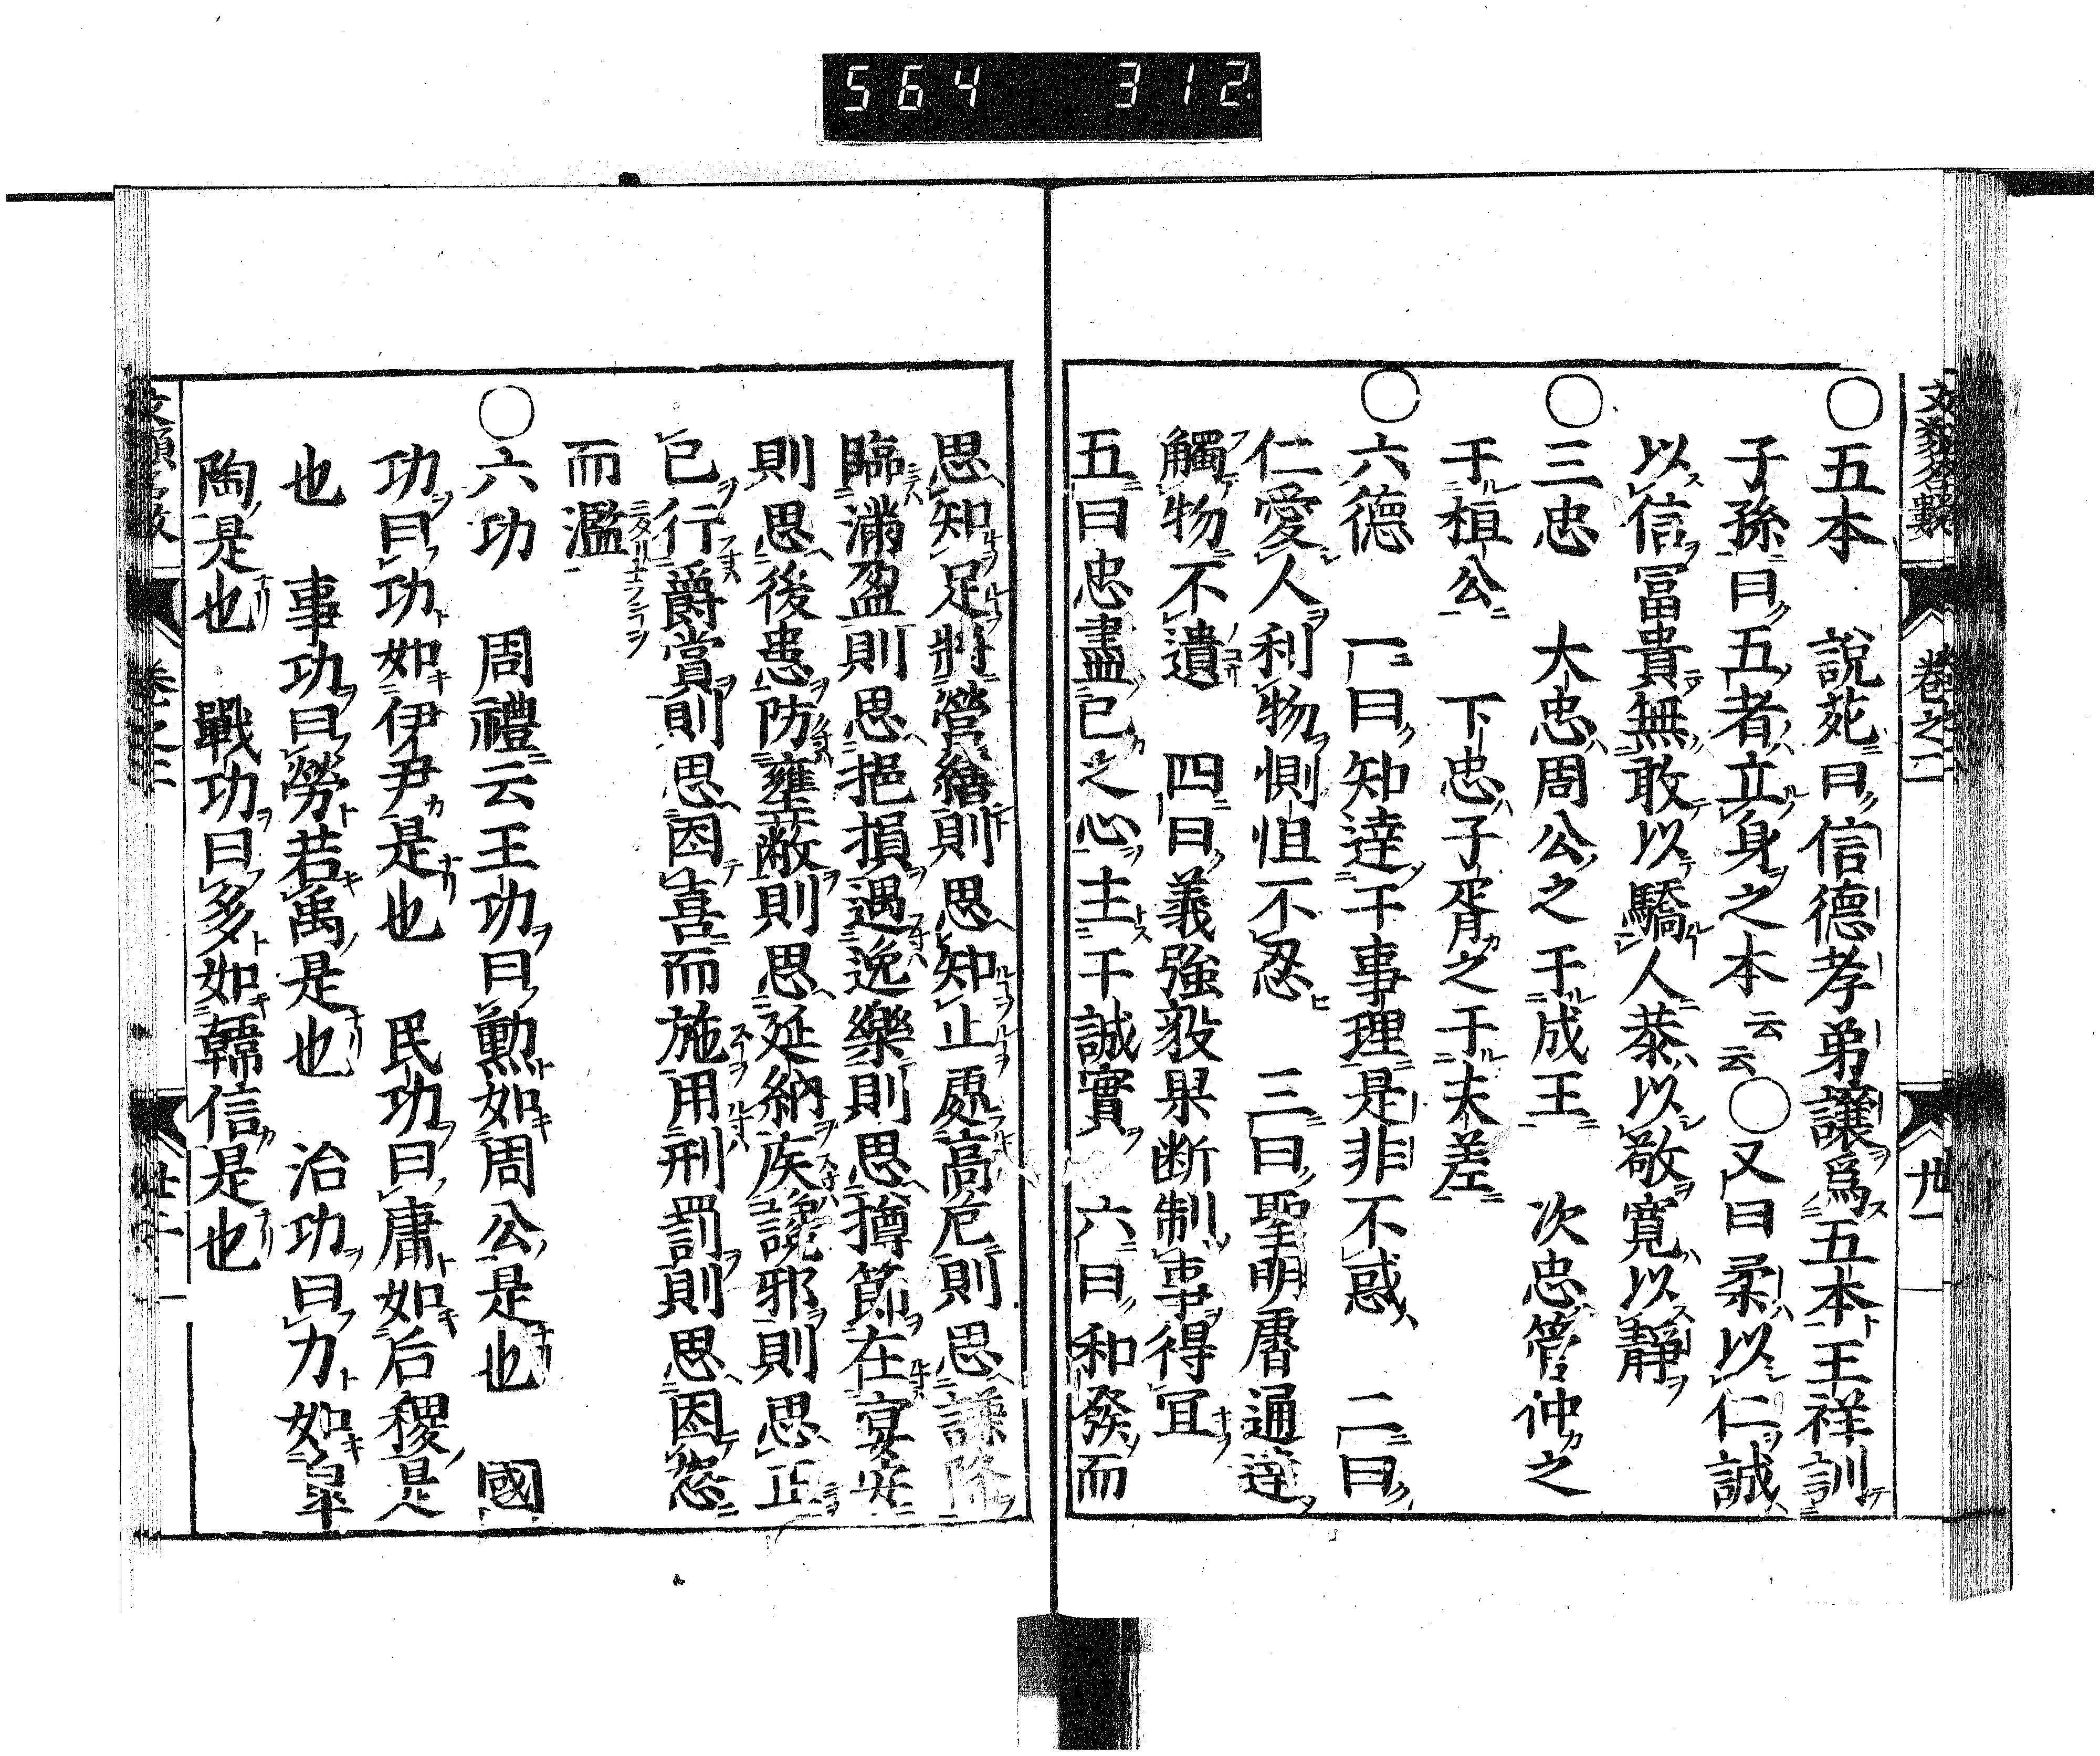 564 312
卷之二
卅一
○五本 說苑曰信德孝弟讓爲五本王祥訓
子孫曰五者立身之本云云○又曰柔以仁誠
以信冨貴無敢以驕人恭以敬寬以靜
○三忠 大忠周公之于成王 次忠管仲之
于桓公 下忠子胥之于夫差
○六德 一曰知達于事理是非不惑 二曰
仁愛人利物惻怛不忍 三曰聖明睿通達
觸物不遺 四曰義強毅果断制事得冝
五曰忠盡己之心主于誠實 六曰和發而
思知足將營繕則思知止處高危則思謙降
臨滿盈則思挹損遇逸樂則思撙節在宴安
則思後患防壅蔽則思延納疾讒邪則思正
已行爵賞則思因喜而施用刑罰則思因怒
而濫
○六功 周禮云王功曰勲如周公是也 國
功曰功如伊尹是也 民功曰庸如后稷是
也 事功曰勞若禹是也 治功曰力如皐
陶是也 戰功曰多如韓信是也